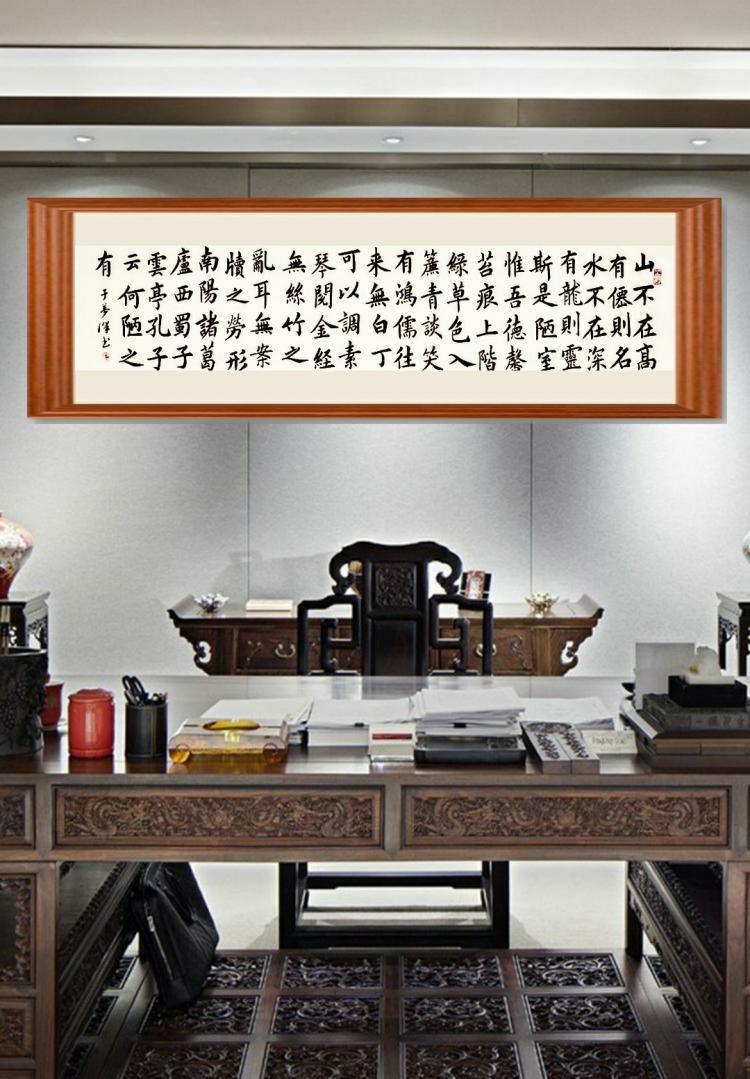 山不在高
有僊則名
水不在深
有龍則靈
斯是陋室
惟吾德馨
苔痕上階
緑草色入
簾青談笑
有鴻儒往
来無白丁
可以調素
琴閱金経
無絲竹之
亂耳無案
牘之勞形
南陽諸葛
廬西蜀子
雲亭孔子
云何陋之
有